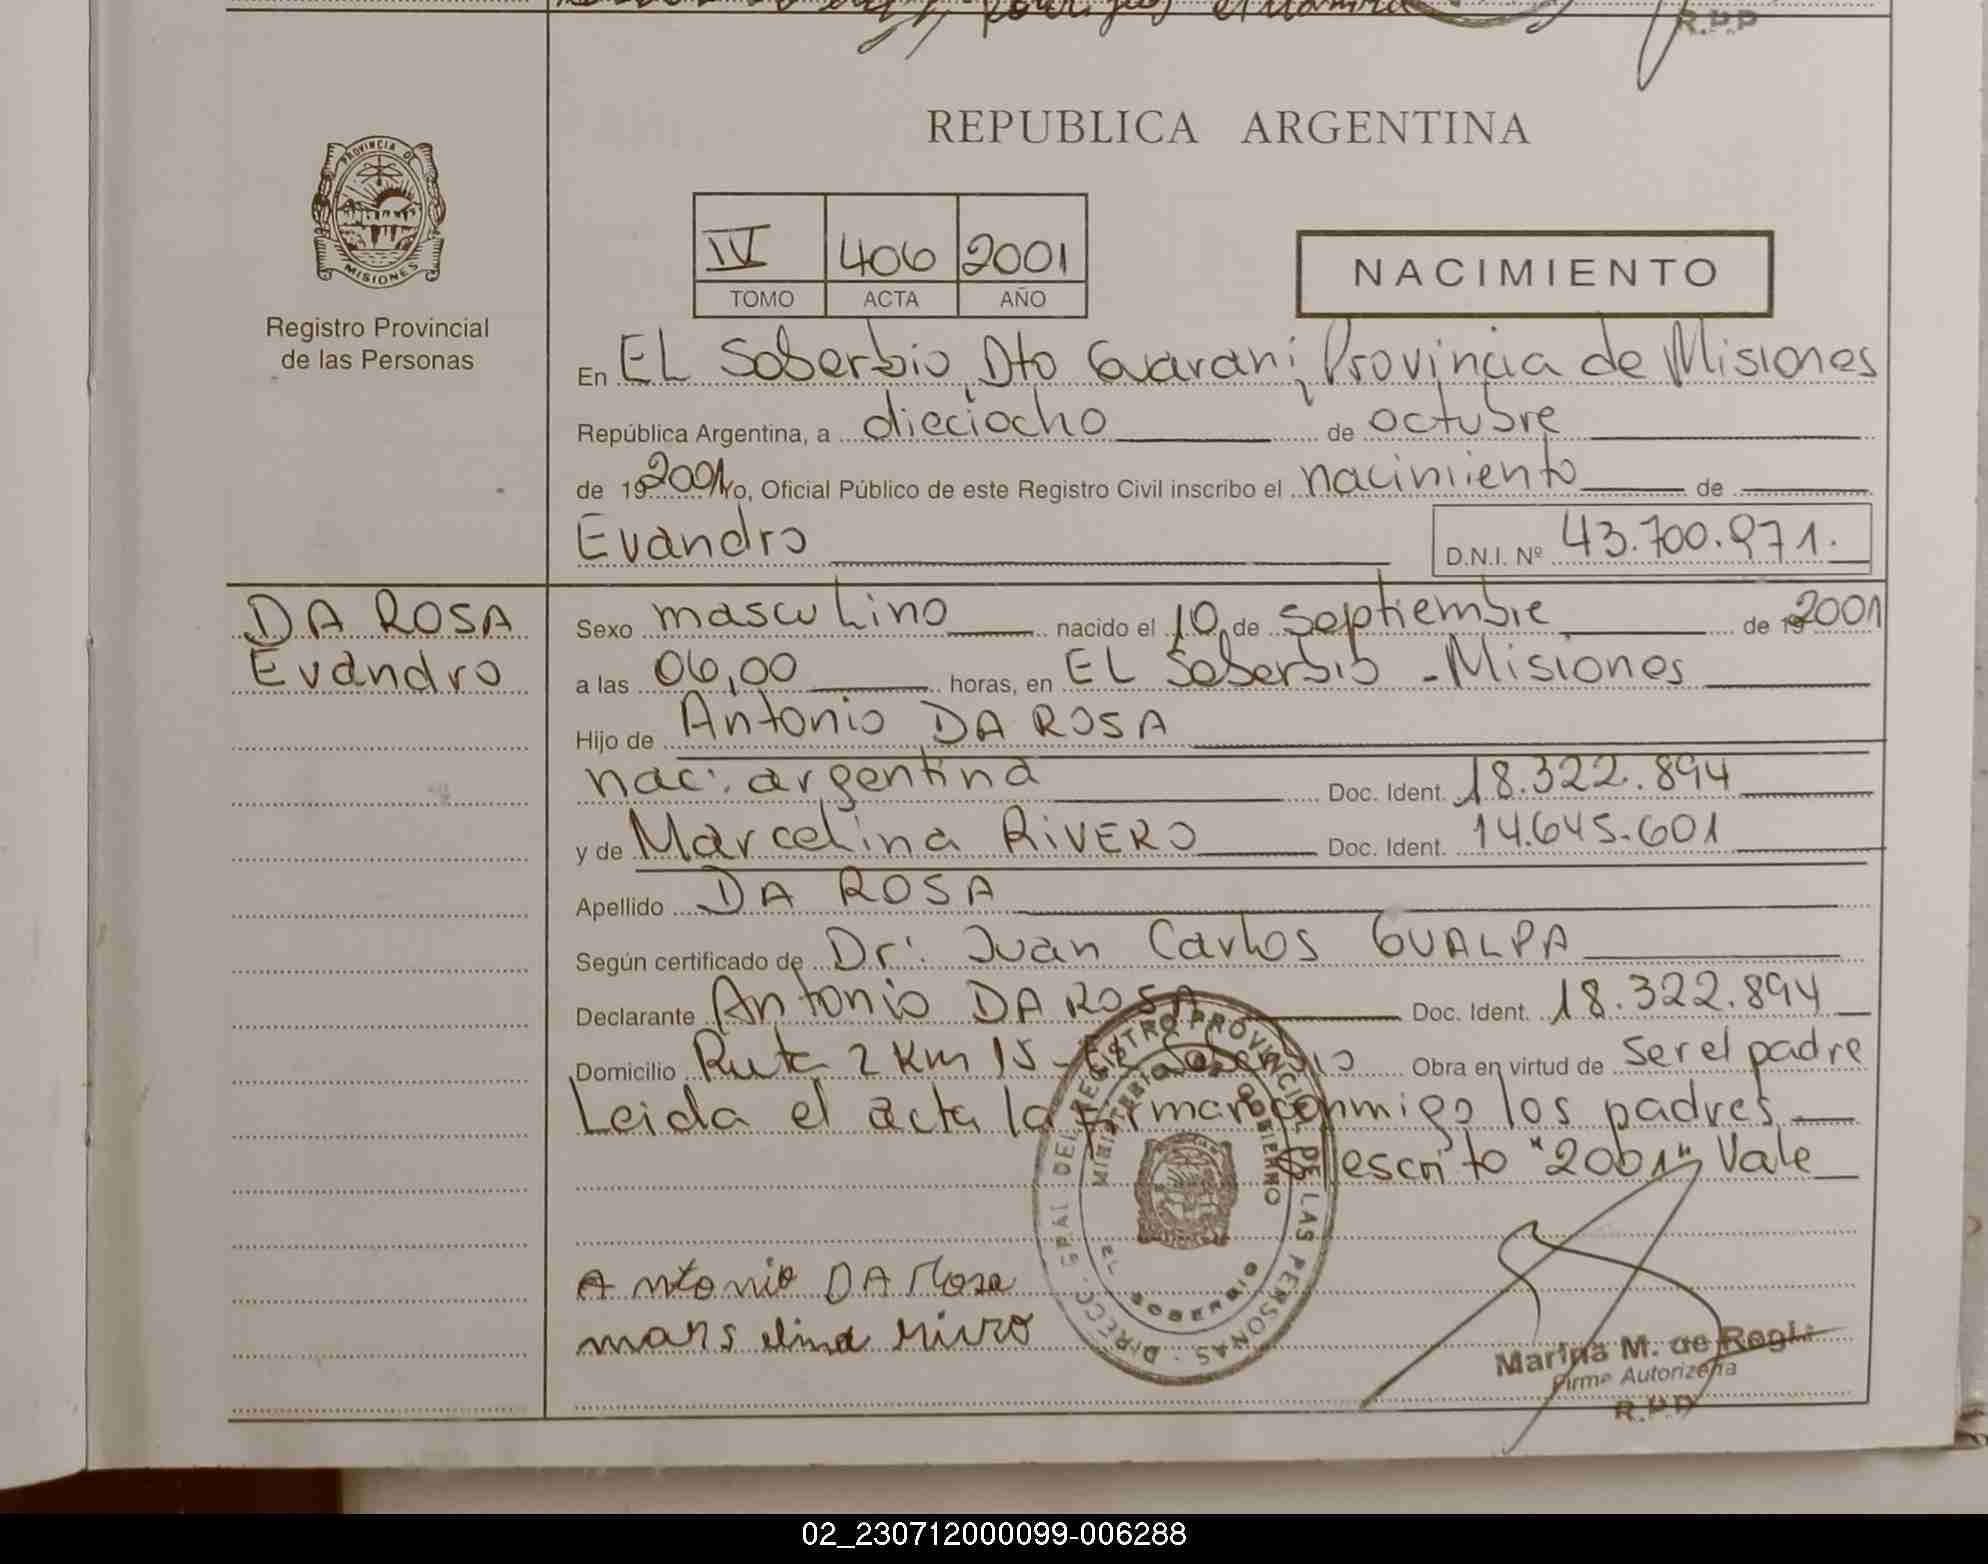 R.P.P
REPUBLICA ARGENTINA
PROVINCIA DE
MISIONES
Registro Provincial
de las Personas
IV 406 2001
TOMO ACTA AÑO
NACIMIENTO
En EL Soberbio, Dto Guarani, Provincia de Misiones
República Argentina, a dieciocho de octubre
de 19 2001 Yo, Oficial Público de este Registro Civil inscribo el nacimiento de
Evandro D.N.I. Nº 43.700.971.
DA ROSA
Evandro
Sexo masculino nacido el 10 de septiembre de 19 2001
a las 06,00 horas, en EL Soberbio - Misiones
Hijo de Antonio DA ROSA
nac: argentina Doc. Ident. 18.322.894
y de Marcelina RIVERO Doc. Ident. 14.645.601
Apellido DA ROSA
Según certificado de Dr: Juan Carlos GUALPA
Declarante Antonio DA ROSA Doc. Ident. 18.322.894
Domicilio Ruta 2 Km 15 - El Soberbio Obra en virtud de ser el padre
Leida el acta la firman conmigo los padres
escrito "2001" Vale
DIRECC. GRAL DEL REGISTRO PROVINCIAL DE LAS PERSONAS
MINISTERIO DE GOBIERNO
EL SOBERBIO
Antonio DA Rosa
mars elina rivro
Marina M. de Regi
Firma Autorizada
R.P.P
02_230712000099-006288